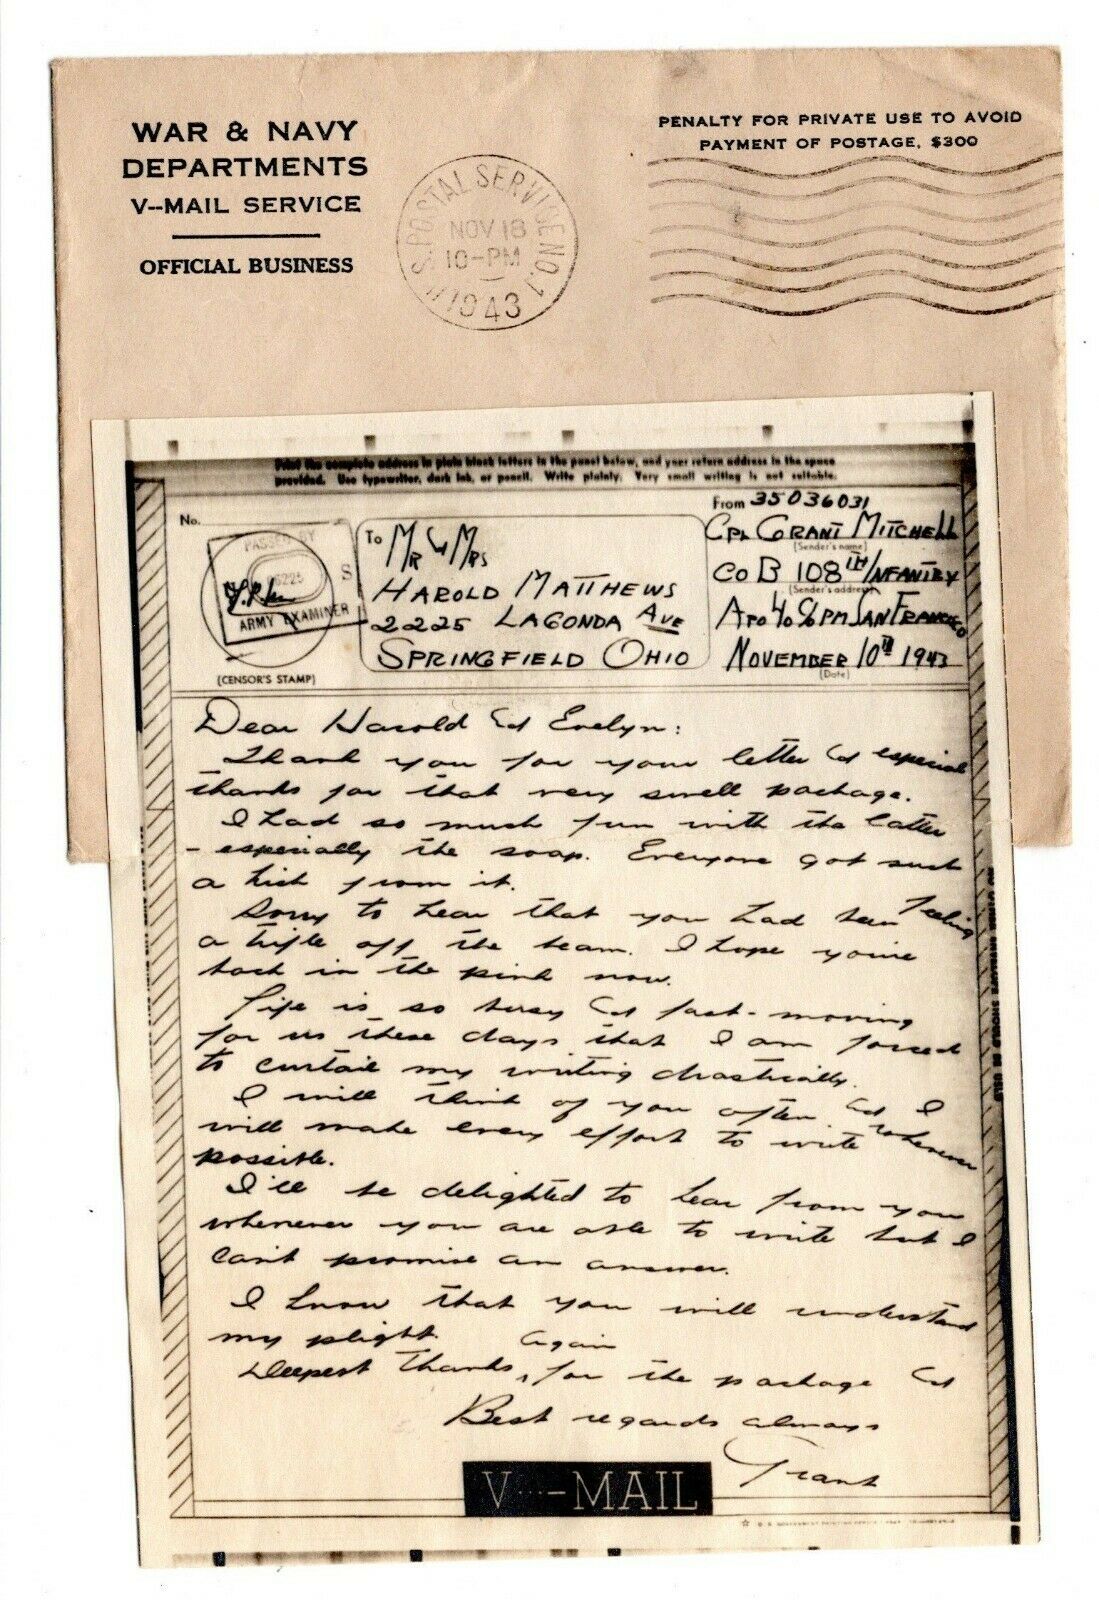 WAR & NAVY
DEPARTMENTS
V--MAIL SERVICE
OFFICIAL BUSINESS
U.S. POSTAL SERVICE NO. 1
NOV 18
10-PM
1943
PENALTY FOR PRIVATE USE TO AVOID
PAYMENT OF POSTAGE, $300
Print the complete address in plain block letters in the panel below, and your return address in the space
provided. Use typewriter, dark ink, or pencil. Write plainly. Very small writing is not suitable.
No.
PASSED BY
S
ARMY EXAMINER
(CENSOR'S STAMP)
To
MR & MRS
HAROLD MATTHEWS
2225 LAGONDA AVE
SPRINGFIELD OHIO
From 35036031
CPL GRANT MITCHELL
(Sender's name)
CO B 108TH INFANTRY
(Sender's address)
APO 40 c/o PM SAN FRANCISCO
NOVEMBER 10TH 1943
(Date)
Dear Harold & Evelyn:
Thank you for your letter & especial
thanks for that very swell package.
I had so much fun with the latter
- especially the soap. Everyone got such
a kick from it.
Sorry to hear that you had been feeling
a trifle off the beam. I hope you're
back in the pink now.
Life is so busy & fast-moving
for us these days that I am forced
to curtail my writing drastically.
I will think of you often & I
will make every effort to write whenever
possible.
I'll be delighted to hear from you
whenever you are able to write but I
can't promise an answer.
I know that you will understand
my plight.
Deepest thanks, again for the package &
Best regards always
Grant
V···-MAIL